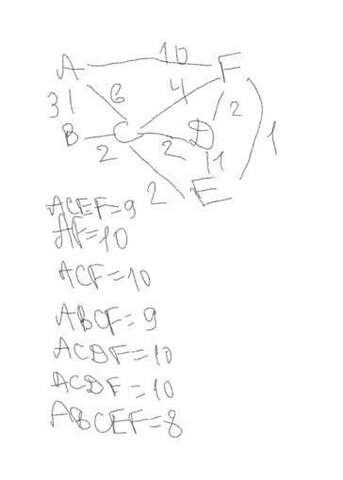 A 10 F
3 6 4
B C D 2
2 2 1 1
2 E
ACEF=9
AF=10
ACF=10
ABCF=9
ACDF=10
ACDF=10
ABCEF=8